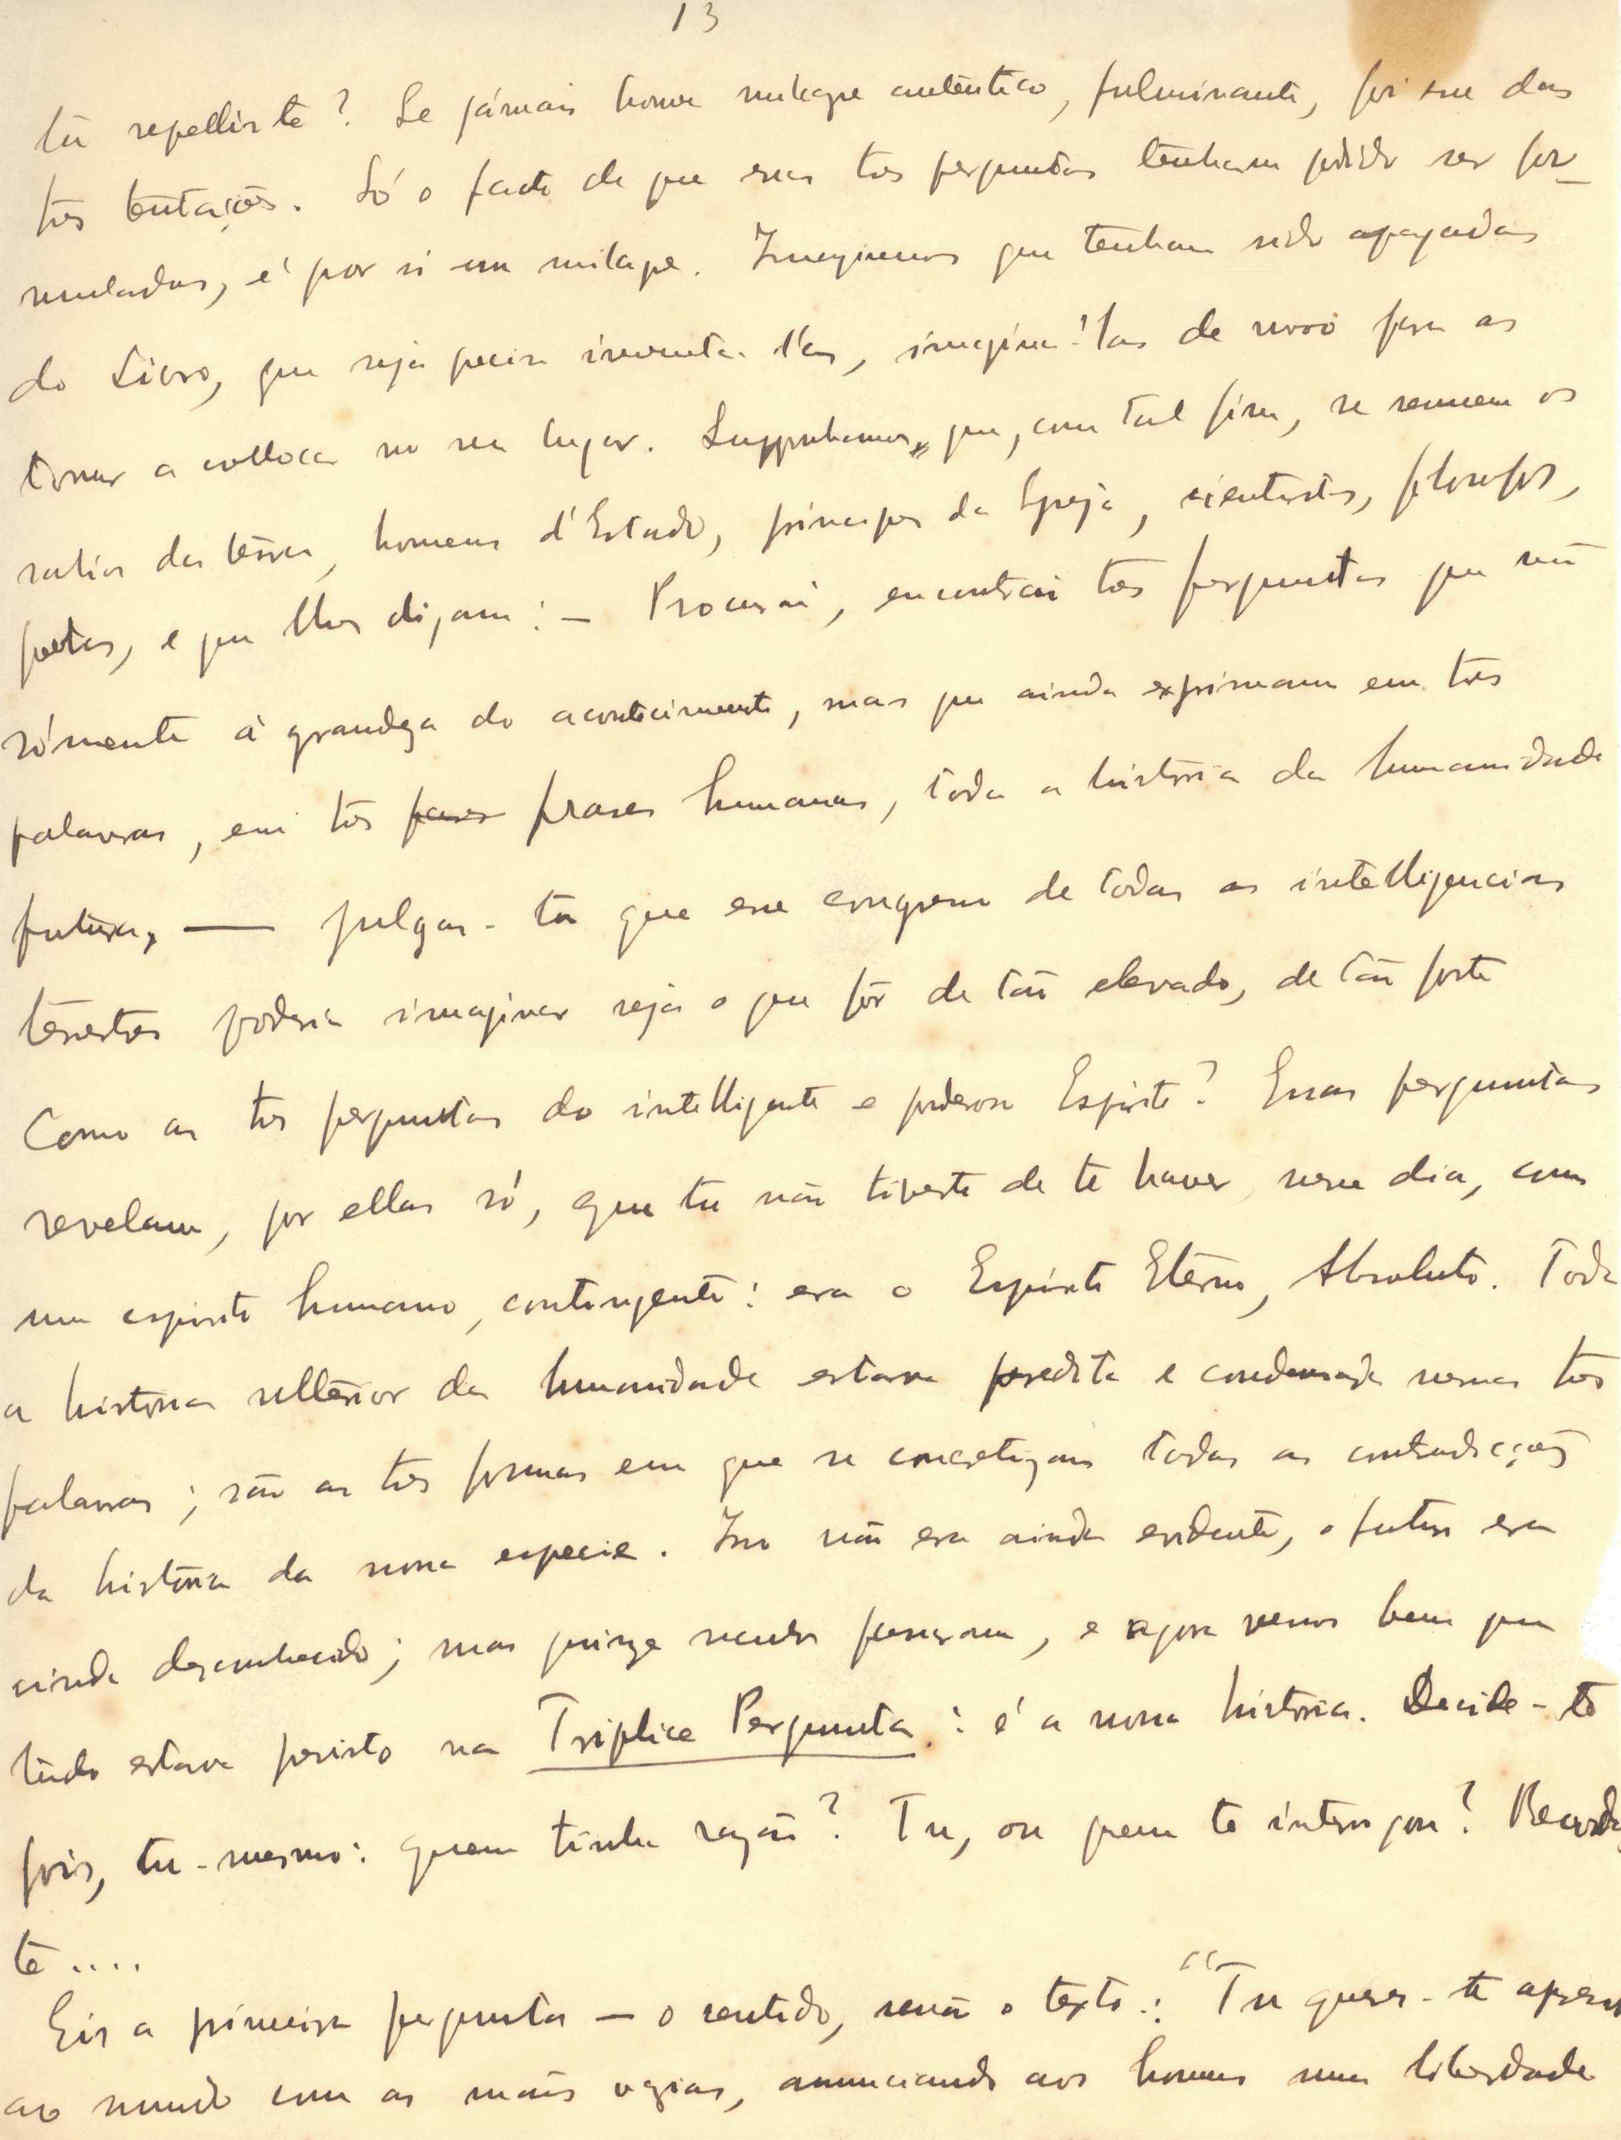 13
tu repelliste? Se jámais houve milagre autêntico, fulminante, foi esse das
tres tentações. Só o facto de que essas tres perguntas tenham podido ser for-
muladas, é por si um milagre. Imaginemos que tenham sido apagadas
do Livro, que seja preciso inventa-l'as, imagina'-las de novo para as
tornar a collocar no seu lugar. Supponhamos que, com tal fim, se reunem os
sabios da terra, homens d'Estado, principes da Egreja, scientistas, filosofos,
poetas, e que lhes digam: — Procurai, encontrai tres perguntas que não
sómente á grandeza do acontecimento, mas que ainda exprimam em tres
palavras, em tres frases humanas, toda a história da humanidade
futura, — julgas-tu que esse congresso de todas as intelligencias
terrestres poderia imaginar seja o que fôr de tão elevado, de tão forte
Como as tres perguntas do intelligente e poderoso Espirito? Essas perguntas
revelam, por ellas só, que tu não tiveste de te haver, nesse dia, com
um espirito humano, contingente: era o Espirito Eterno, Absoluto. Toda
a historia ulterior da humanidade estava predita e condensada nessas tres
palavras; são as tres formas em que se concretizam todas as contradicções
da história da nossa especie. Isso não era ainda evidente, o futuro era
ainda desconhecido; mas quinze seculos passaram, e agora vemos bem que
tudo estava previsto na Triplice Pergunta: é a nossa historia. Decide-te
pois, tu-mesmo: quem tinha razão? Tu, ou quem te interrogou? Recorda
te....
Eis a primeira pergunta — o sentido, senão o texto: "Tu queres-te
ao mundo com as mãos vazias, annunciando aos homens uma liberdade